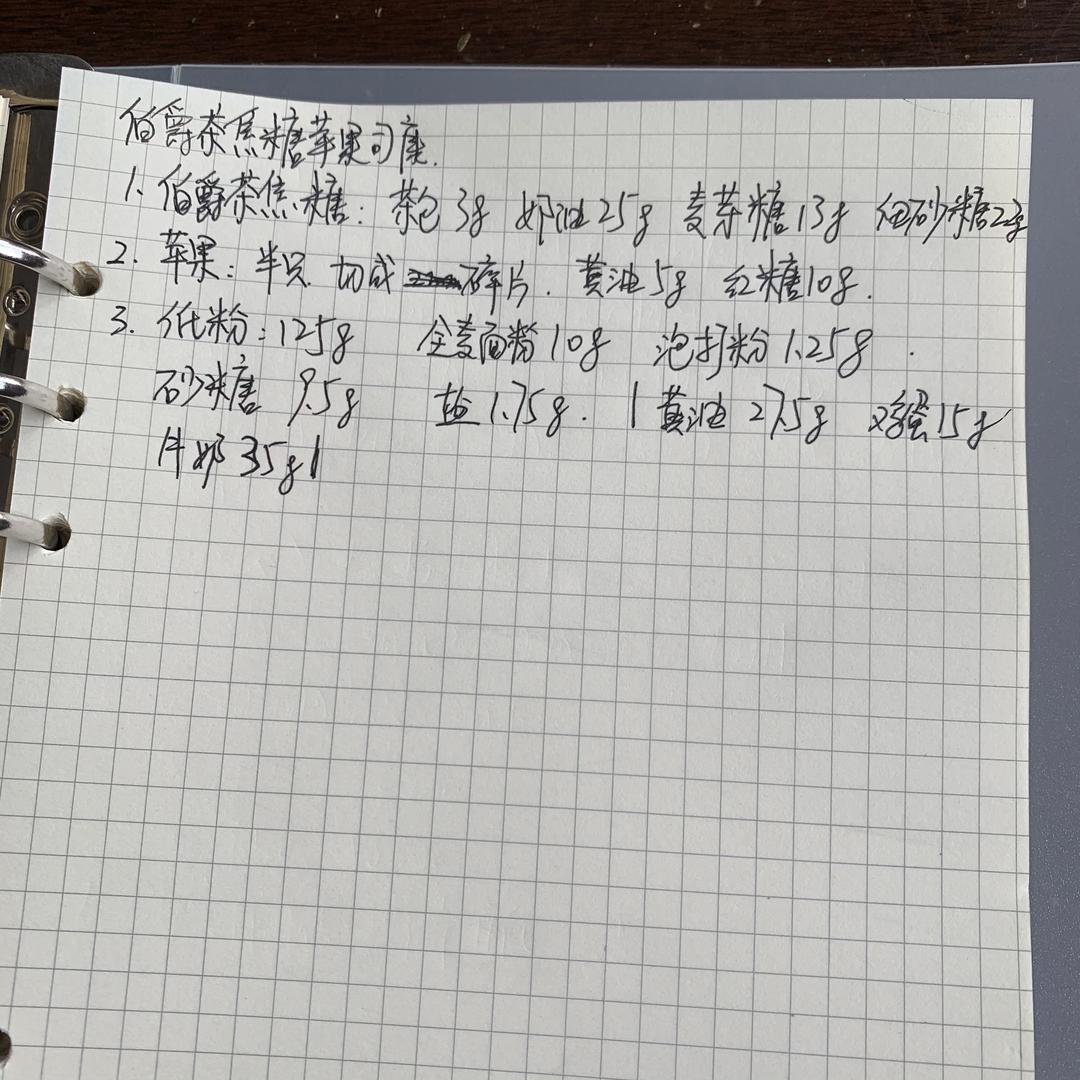 伯爵茶焦糖苹果司康.
1. 伯爵茶焦糖: 茶包 3g 奶油 25g 麦芽糖 13g 细砂糖 22g
2. 苹果: 半只 切成 碎片. 黄油 5g 红糖 10g.
3. 低粉: 125g 全麦面粉 10g 泡打粉 1.25g.
砂糖 9.5g 盐 1.75g. | 黄油 27.5g 鸡蛋 15g
牛奶 35g |